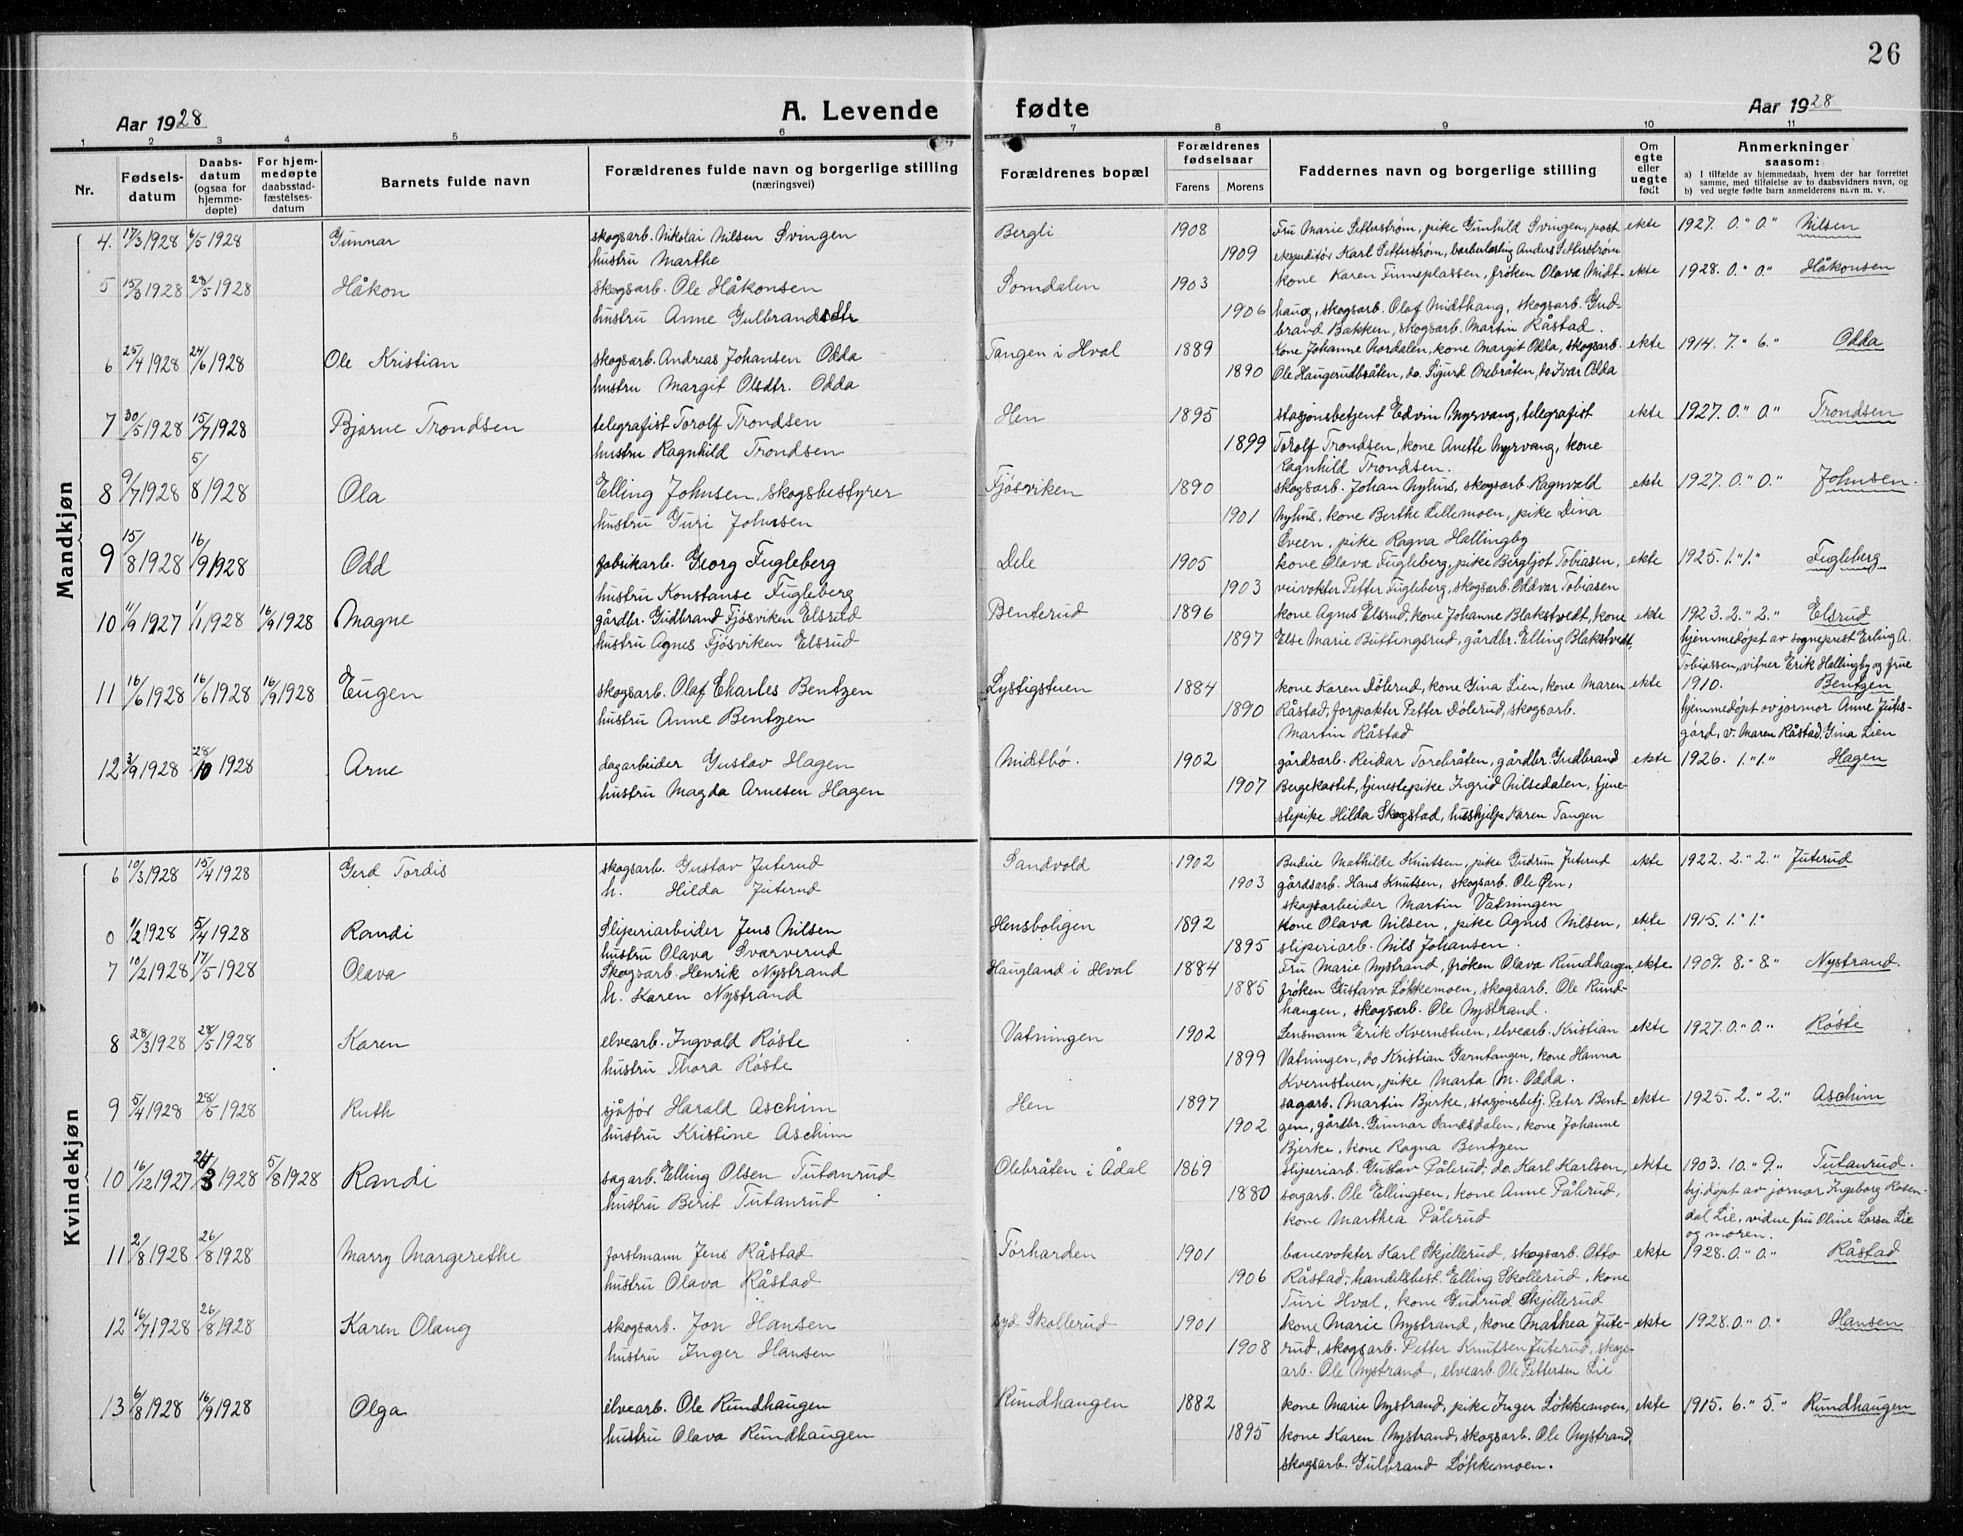 26
Aar 1928 A. Levende fødte Aar 1928
1 2 3 4 5 6 7 8 9 10 11
Nr. Fødsels-datum Daabs-datum (ogsaa for hjemme-døpte) For hjem-medøpte daabsstad-fæstelses-datum Barnets fulde navn Forældrenes fulde navn og borgerlige stilling (næringsvei) Forældrenes bopæl Forældrenes fødselsaar Farens Morens Faddernes navn og borgerlige stilling Om egte eller uegte født Anmerkninger saasom:
a) I tilfælde av hjemmedaab, hvem der har forrettet samme, med tilføielse av to daabsvidners navn, og
b) ved uegte fødte barn anmelderens navn m. v.
Mandkjøn
4. 17/3 1928 6/5 1928 Gunnar skogsarb. Nikolai Nilsen Svingen Bergli 1908 Fru Marie Setterstrøm, pike Gunhild Svingen, post ekte 1927. 0." 0." Nilsen
hustru Marthe 1909 ekspeditør Karl Setterstrøm, barberlærling Anders Setterstrøm
5 15/3 1928 28/5 1928 Håkon skogsarb. Ole Håkonsen Somdalen 1903 kone Karen Finneplassen, frøken Olava Midt- ekte 1928. 0." 0." Håkonsen
hustru Anne Gulbrandsdtr 1906 haug, skogsarb. Olaf Midthaug, skogsarb. Gud-
brand Bakken, skogsarb. Martin Råstad.
6 25/4 1928 24/6 1928 Ole Kristian skogsarb. Andreas Johansen Odda Tangen i Hval 1889 Kone Johanne Nordalen, kone Margit Odda, skogsarb. ekte 1914. 7." 6." Odda
hustru Margit Olsdtr. Odda 1890 Ole Haugerudbråten, do. Sigurd Orebråten, do Ivar Odda
7 30/5 1928 15/7 1928 Bjarne Trondsen telegrafist Torolf Trondsen Hen 1895 stasjonsbetjent Edvin Myrvang, telegrafist ekte 1927. 0." 0." Trondsen
hustru Ragnhild Trondsen 1899 Torolf Trondsen, kone Anette Myrvang, kone
Ragnhild Trondsen.
8 9/7 1928 5/8 1928 Ola Elling Johnsen, skogsbestyrer Fjøsviken 1890 skogsarb. Johan Nyhus, skogsarb. Ragnvald ekte 1927. 0." 0." Johnsen.
hustru Guri Johnsen 1901 Nyhus, kone Berthe Lillemoen, pike Dina
Sveen, pike Ragna Hallingby
9 15/8 1928 16/9 1928 Odd fabrikarb. Georg Fugleberg Dele 1905 kone Olava Fugleberg, pike Bergljot Tobiasen, ekte 1925. 1." 1." Fugleberg
hustru Konstanse Fugleberg 1903 veivokter Petter Fugleberg, skogsarb. Oddvar Tobiasen
10 11/9 1927 1/1 1928 16/9 1928 Magne gårdbr. Gudbrand Fjøsviken Elsrud Benterud 1896 kone Agnes Elsrud, kone Johanne Blakstvedt, kone ekte 1923. 2." 2." Elsrud
hustru Agnes Fjøsviken Elsrud 1897 Else Marie Buttingsrud, gårdbr. Elling Blakstvedt, hjemmedøpt av sogneprest Erling A.
Tobiassen, vitner Erik Hallingby og frue
11 16/6 1928 16/6 1928 16/9 1928 Eugen skogsarb. Olaf Charles Bentzen Lystigstuen 1884 kone Karen Dølerud, kone Gina Lien, kone Maren ekte 1910. Bentzen
hustru Anne Bentzen 1890 Råstad, forpakter Petter Dølerud, skogsarb. hjemmedøpt av jormor Anne Jutes-
Martin Råstad gård, v. Maren Råstad, Gina Lien
12 3/9 1928 28/10 1928 Arne dagarbeider Gustav Hagen Midtbø. 1902 gårdsarb. Reidar Torebråten, gårdbr. Gudbrand ekte 1926. 1." 1." Hagen
hustru Magda Arnesen Hagen 1907 Bergekastet, tjenestepike Ingrid Nilsedalen, tjene-
stepike Hilda Skogstad, hushjelp Karen Tangen
Kvindekjøn
6 10/3 1928 15/4 1928 Gerd Tordis skogsarb. Gustav Juterud Sandvold 1902 Budeie Mathilde Knutsen, pike Gudrun Juterud ekte 1922. 2." 2." Juterud
h. Hilda Juterud 1903 gårdsarb. Hans Knutsen, skogsarb. Ole Øen,
skogsarbeider Martin Vatningen
0 1/2 1928 5/4 1928 Randi Sliperiarbeider Jens Nilsen Hensboligen 1892 Kone Olava Nilsen, pike Agnes Nilsen, ekte 1915. 1." 1."
hustru Olava Svarverud 1895 sliperiarb. Nils Johansen.
7 10/2 1928 17/5 1928 Olava Skogsarb. Henrik Nystrand Haugland i Hval 1884 Fru Marie Nystrand, frøken Olava Rundhaugen, ekte 1909. 8." 8." Nystrand.
h. Karen Nystrand 1885 frøken Gustava Løkkemoen, skogsarb. Ole Rund-
haugen, skogsarb. Ole Nystrand.
8 28/3 1928 28/5 1928 Karen elvearb. Ingvald Røste Vatningen 1902 Lensmann Erik Kvernstuen, elvearb. Kristian ekte 1927. 0." 0." Røste
hustru Thora Røste 1899 Vatningen, do Kristian Garntangen, kone Hanna
Kvernstuen, pike Marta M. Odda.
9 5/4 1928 28/5 1928 Ruth sjåfør Harald Aschim Hen 1897 sagarb. Martin Bjerke, stasjonsbetj. Peter Bent- ekte 1925. 2." 2." Aschim
hustru Kristine Aschim 1902 gen, gårdbr. Gunnar Sandsdalen, kone Johanne
Bjerke, kone Ragna Bentzen
10 16/12 1927 24/3 1928 5/8 1928 Randi sagarb. Elling Olsen Tutanrud Olebråten i Ådal 1869 sliperiarb. Gustav Pålerud, do. Karl Karlsen, ekte 1903. 10." 9." Tutanrud.
hustru Berit Tutanrud 1880 sagarb. Ole Ellingsen, kone Anne Pålerud, hj.døpt av jormor Ingeborg Rosen-
kone Marthea Pålerud dal Lie, vidne fru Oline Larsen Lie
og moren.
11 2/8 1928 26/8 1928 Marry Margerethe forstmann Jens Råstad Tørharden 1901 banevokter Karl Skjellerud, skogsarb. Otto ekte 1928. 0." 0." Råstad
hustru Olava Råstad 1906 Råstad, handelsbest. Elling Skollerud, kone
Turi Hval, kone Gudrud Skjellerud
12 16/7 1928 26/8 1928 Karen Olaug skogsarb. Jon Hansen syd Skollerud 1901 kone Marie Nystrand, kone Mathea Jute- ekte 1928. 0." 0." Hansen
hustru Inger Hansen 1908 rud, skogsarb. Petter Knutsen Juterud, skogs-
arb. Ole Nystrand, elvearb. Ole Pettersen Lie
13 6/8 1928 16/9 1928 Olga elvearb. Ole Rundhaugen Rundhaugen 1882 kone Marie Nystrand, pike Inger Løkkemoen, ekte 1915. 6." 5." Rundhaugen
hustru Olava Rundhaugen 1895 kone Karen Nystrand, skogsarb. Ole Nystrand,
skogsarb. Gulbrand Løkkemoen.